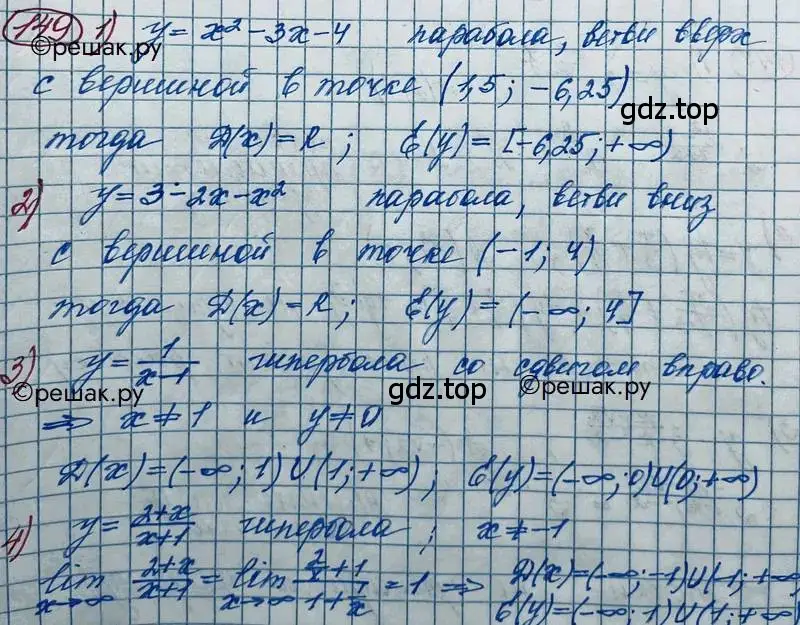 149 1) y = x² - 3x - 4 парабола, ветви вверх
©решак.ру
с вершиной в точке (1,5; -6,25)
gdz.top
тогда D(x) = R; E(y) = [-6,25; +∞)
2) y = 3 - 2x - x² парабола, ветви вниз
с вершиной в точке (-1; 4)
тогда D(x) = R; E(y) = (-∞; 4]
3) y = 1/(x-1) гипербола со сдвигом вправо.
©решак.ру gdz.top ©решак.ру
⇒ x ≠ 1 и y ≠ 0
D(x) = (-∞; 1) U (1; +∞); E(y) = (-∞; 0) U (0; +∞)
4) y = (2+x)/(x+1) гипербола; x ≠ -1
lim x→∞ (2+x)/(x+1) = lim x→∞ (2/x + 1)/(1 + 1/x) = 1 ⇒ D(x) = (-∞; -1) U (-1; +∞
E(y) = (-∞; 1) U (1; +∞